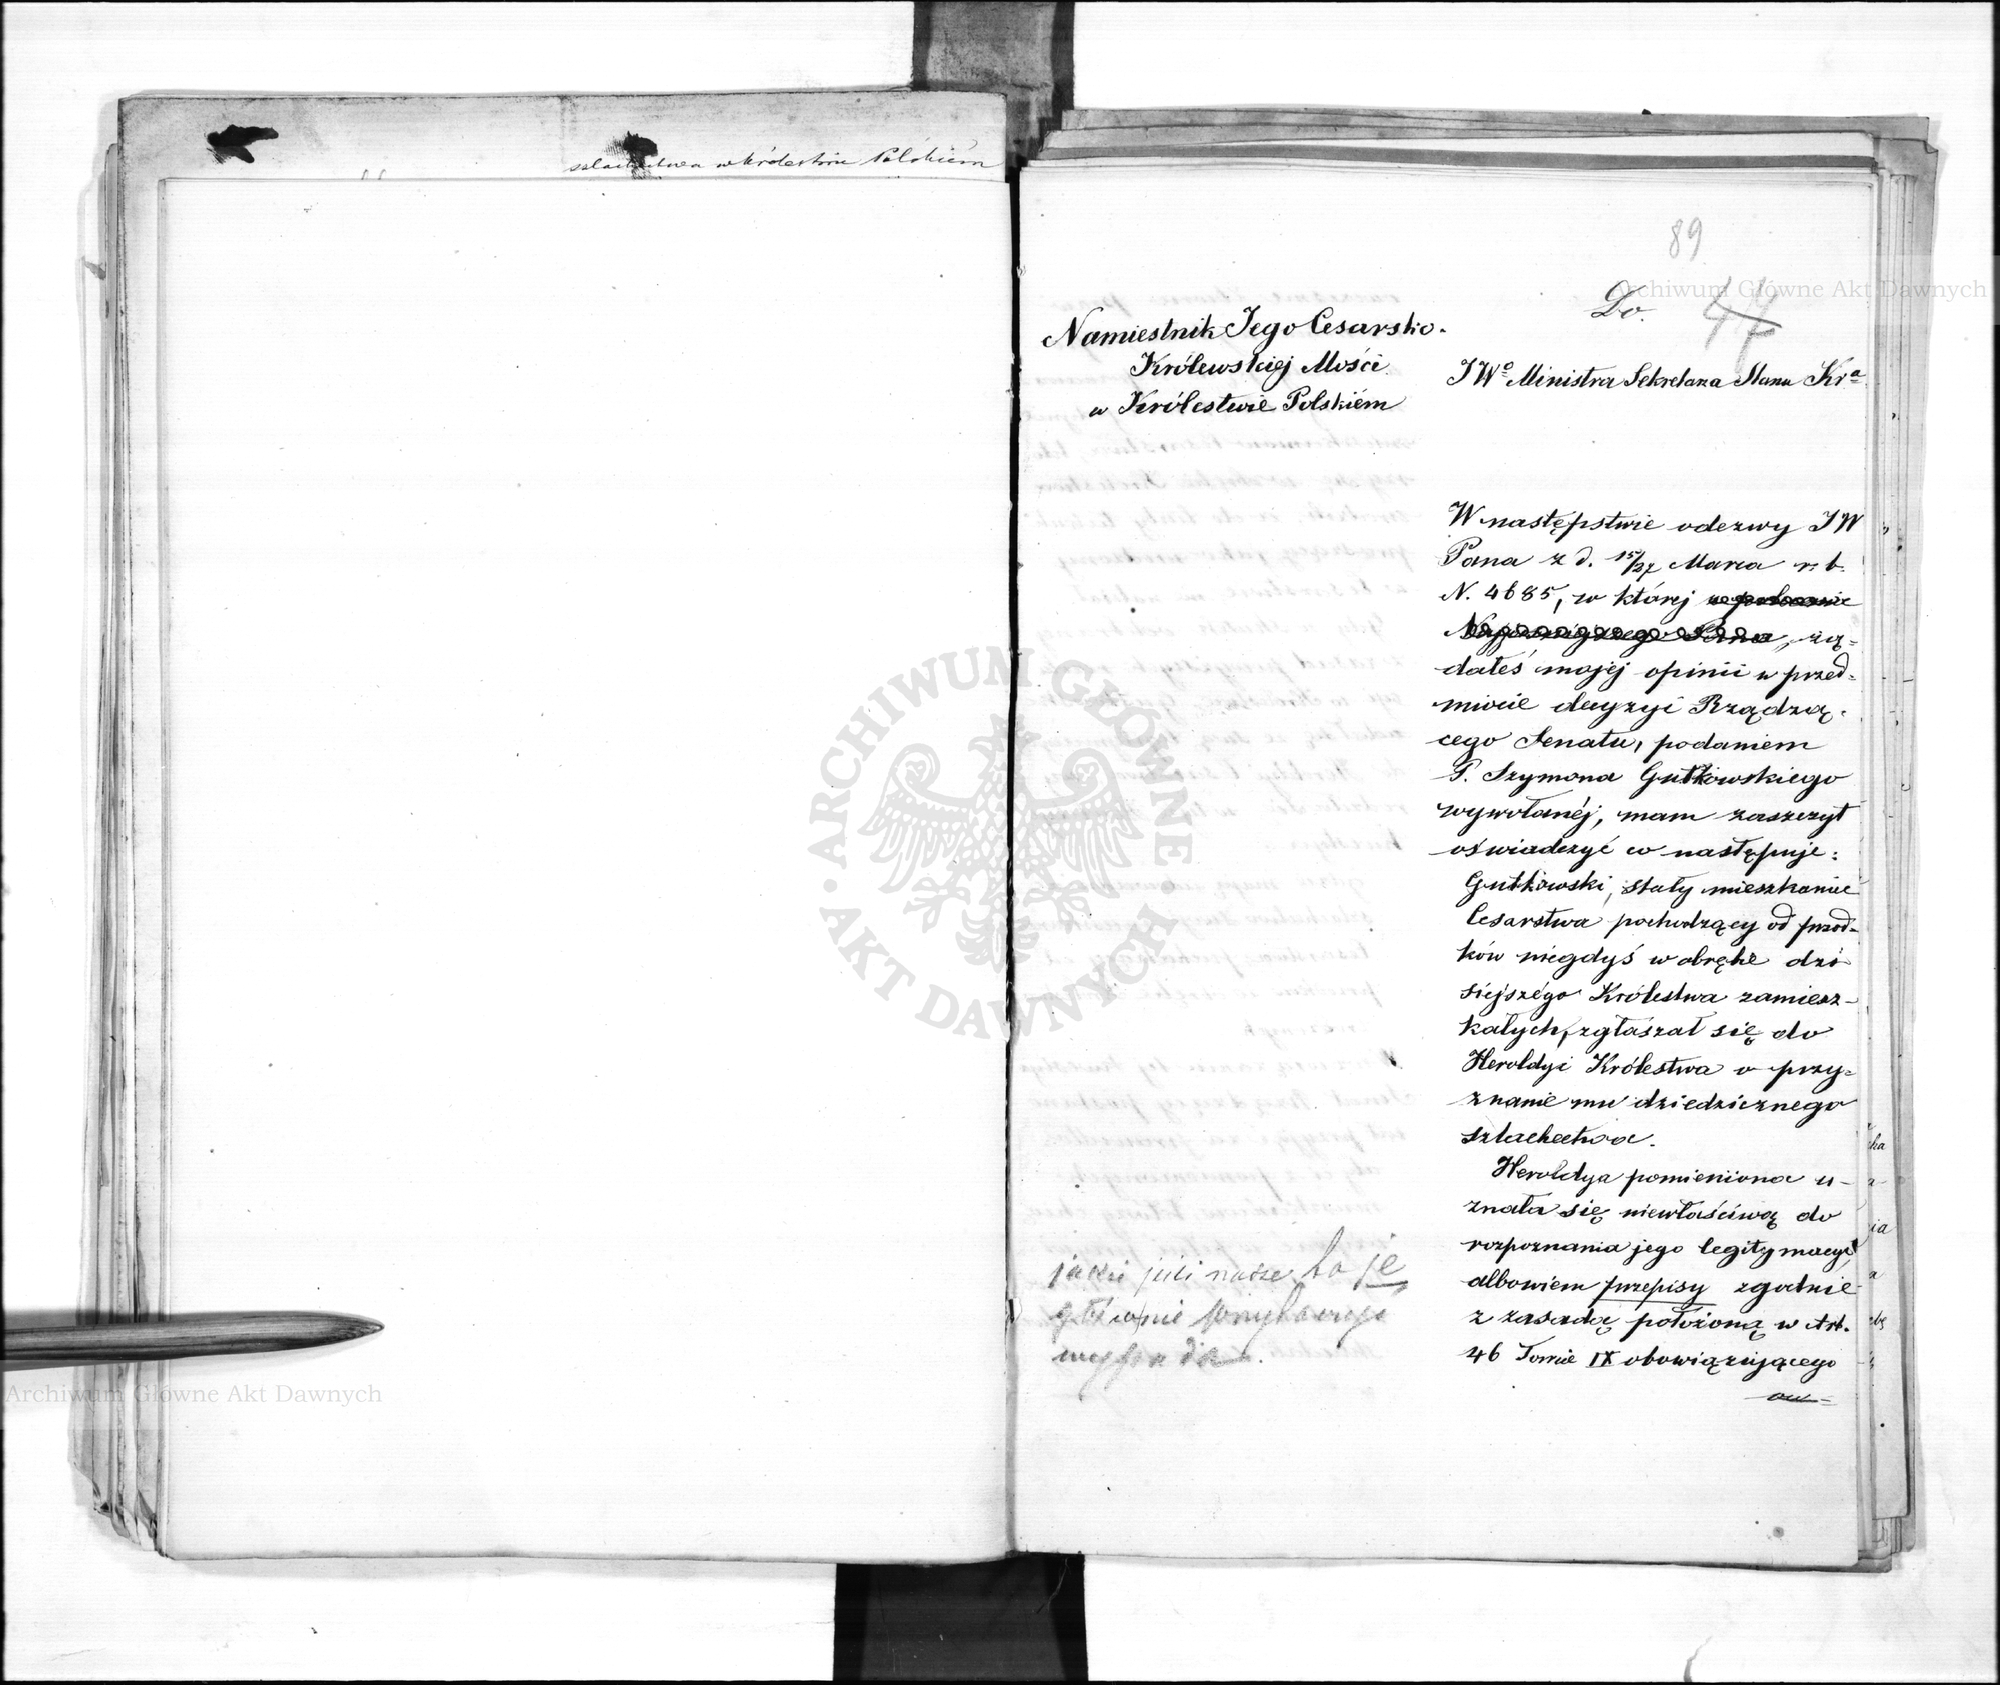 szlachectwa w Królestwie Polskiém
89
Do.
47
Namiestnik Jego Cesarsko-
Królewskiej Mości
w Królestwie Polskiém
JWº Ministra Sekretarza Stanu Krª
W następstwie odezwy JW
Pana z d. 15/27 Marca r. b.
N. 4685, w której
Najjaśniejszego Pana, żą-
dałeś mojéj opinii w przed-
miocie decyzyi Rządzą-
cego Senatu, podaniem
P. Szymona Gutkowskiego
wywołanéj, mam zaszczyt
oświadczyć co następuje:
Gutkowski, stały mieszkaniec
Cesarstwa pochodzący od przod-
ków niegdyś w obrębie dzi
siejszégo Królestwa zamiesz-
kałych, zgłaszał się do
Heroldyi Królestwa o przy-
znanie mu dziedzicznego
szlachectwa.
Heroldya pomieniona u-
znała się niewłaściwą do
rozpoznania jego legitymacyi,
albowiem przepisy zgodnie
z zasadą położoną w Art.
46 Tomie IX obowiązującego
jakie jeśli nasze to je
wypada.